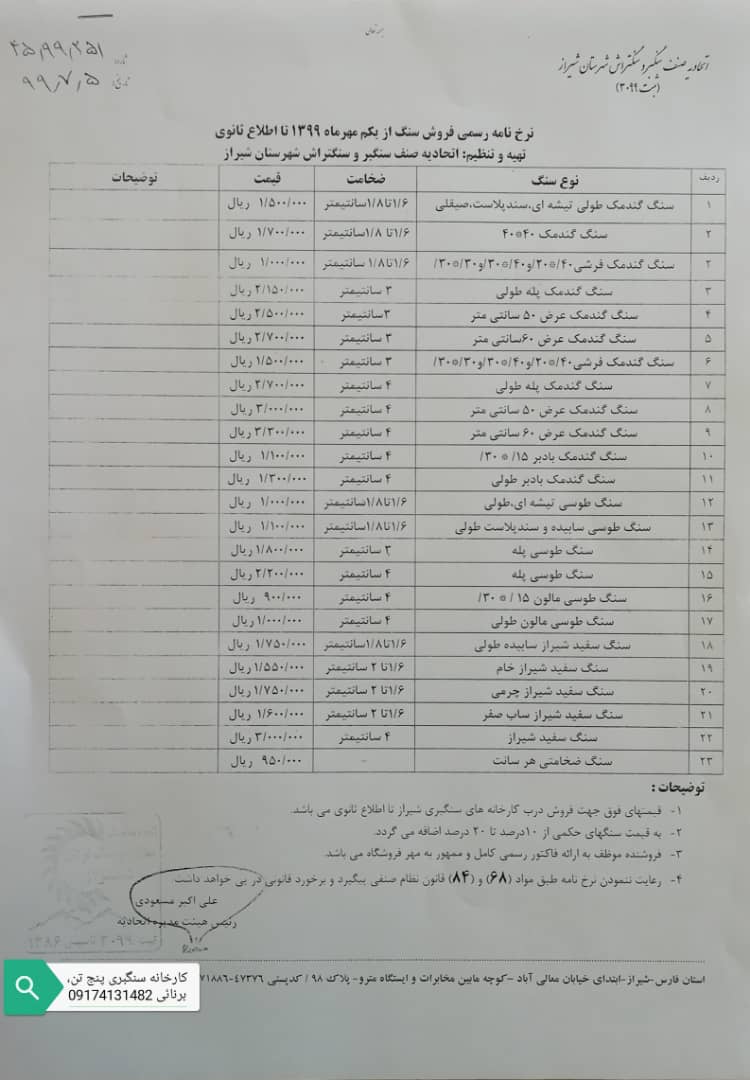 اتحادیه صنف سنگبر و سنگتراش شهرستان شیراز
(ثبت ۳۰۹۹)
شماره ۴۵٫۹۹٫۲۵۱
تاریخ ۹۹٫۷٫۵
نرخ نامه رسمی فروش سنگ از یکم مهرماه ۱۳۹۹ تا اطلاع ثانوی
تهیه و تنظیم: اتحادیه صنف سنگبر و سنگتراش شهرستان شیراز
ردیف نوع سنگ ضخامت قیمت توضیحات
۱ سنگ گندمک طولی تیشه ای،سندپلاست،صیقلی ۱/۶تا۱/۸سانتیمتر ۱/۵۰۰/۰۰۰ ریال
۲ سنگ گندمک ۴۰*۴۰ ۱/۶تا ۱/۸سانتیمتر ۱/۷۰۰/۰۰۰ ریال
۲ سنگ گندمک فرشی۲۰*/۴۰و۳۰*/۴۰و۳۰*/۳۰/ ۱/۶تا۱/۸ سانتیمتر ۱/۰۰۰/۰۰۰ ریال
۳ سنگ گندمک پله طولی ۳ سانتیمتر ۲/۱۵۰/۰۰۰ ریال
۴ سنگ گندمک عرض ۵۰ سانتی متر ۳سانتیمتر ۲/۵۰۰/۰۰۰ ریال
۵ سنگ گندمک عرض ۶۰سانتی متر ۳ سانتیمتر ۲/۷۰۰/۰۰۰ ریال
۶ سنگ گندمک فرشی۲۰*/۴۰و۳۰*/۴۰و۳۰*/۳۰/ ۳ سانتیمتر ۱/۵۰۰/۰۰۰ ریال
۷ سنگ گندمک پله طولی ۴ سانتیمتر ۲/۷۰۰/۰۰۰ ریال
۸ سنگ گندمک عرض ۵۰ سانتی متر ۴ سانتیمتر ۳/۰۰۰/۰۰۰ ریال
۹ سنگ گندمک عرض ۶۰ سانتی متر ۴ سانتیمتر ۳/۲۰۰/۰۰۰ ریال
۱۰ سنگ گندمک بادبر ۱۵/ * ۳۰/ ۴ سانتیمتر ۱/۱۰۰/۰۰۰ ریال
۱۱ سنگ گندمک بادبر طولی ۴ سانتیمتر ۱/۳۰۰/۰۰۰ ریال
۱۲ سنگ طوسی تیشه ای،طولی ۱/۶تا۱/۸سانتیمتر ۱/۰۰۰/۰۰۰ ریال
۱۳ سنگ طوسی سابیده و سندپلاست طولی ۱/۶تا۱/۸سانتیمتر ۱/۱۰۰/۰۰۰ ریال
۱۴ سنگ طوسی پله ۳ سانتیمتر ۱/۸۰۰/۰۰۰ ریال
۱۵ سنگ طوسی پله ۴ سانتیمتر ۲/۲۰۰/۰۰۰ ریال
۱۶ سنگ طوسی مالون ۱۵ / * ۳۰/ ۴ سانتیمتر ۹۰۰/۰۰۰ ریال
۱۷ سنگ طوسی مالون طولی ۴ سانتیمتر ۱/۰۰۰/۰۰۰ ریال
۱۸ سنگ سفید شیراز سابیده طولی ۱/۶تا۱/۸سانتیمتر ۱/۷۵۰/۰۰۰ ریال
۱۹ سنگ سفید شیراز خام ۱/۶تا ۲ سانتیمتر ۱/۵۵۰/۰۰۰ ریال
۲۰ سنگ سفید شیراز چرمی ۱/۶تا ۲ سانتیمتر ۱/۷۵۰/۰۰۰ ریال
۲۱ سنگ سفید شیراز ساب صفر ۱/۶تا ۲ سانتیمتر ۱/۶۰۰/۰۰۰ ریال
۲۲ سنگ سفید شیراز ۴ سانتیمتر ۳/۰۰۰/۰۰۰ ریال
۲۳ سنگ ضخامتی هر سانت - ۹۵۰/۰۰۰ ریال
توضیحات :
۱- قیمتهای فوق جهت فروش درب کارخانه های سنگبری شیراز تا اطلاع ثانوی می باشد.
۲- به قیمت سنگهای حکمی از ۱۰درصد تا ۲۰ درصد اضافه می گردد.
۳- فروشنده موظف به ارائه فاکتور رسمی کامل و ممهور به مهر فروشگاه می باشد.
۴- رعایت ننمودن نرخ نامه طبق مواد (۶۸) و (۸۴) قانون نظام صنفی پیگیرد و برخورد قانونی در پی خواهد داشت
علی اکبر مسعودی
رئیس هیئت مدیره اتحادیه
ثبت ۳۰۹۹ تاسیس ۱۳۸۶
استان فارس-شیراز-ابتدای خیابان معالی آباد -کوچه مابین مخابرات و ایستگاه مترو- پلاک ۹۸ / کدپستی ۴۷۳۷۶-۷۱۸۸۶
کارخانه سنگبری پنج تن،
برنائی 09174131482